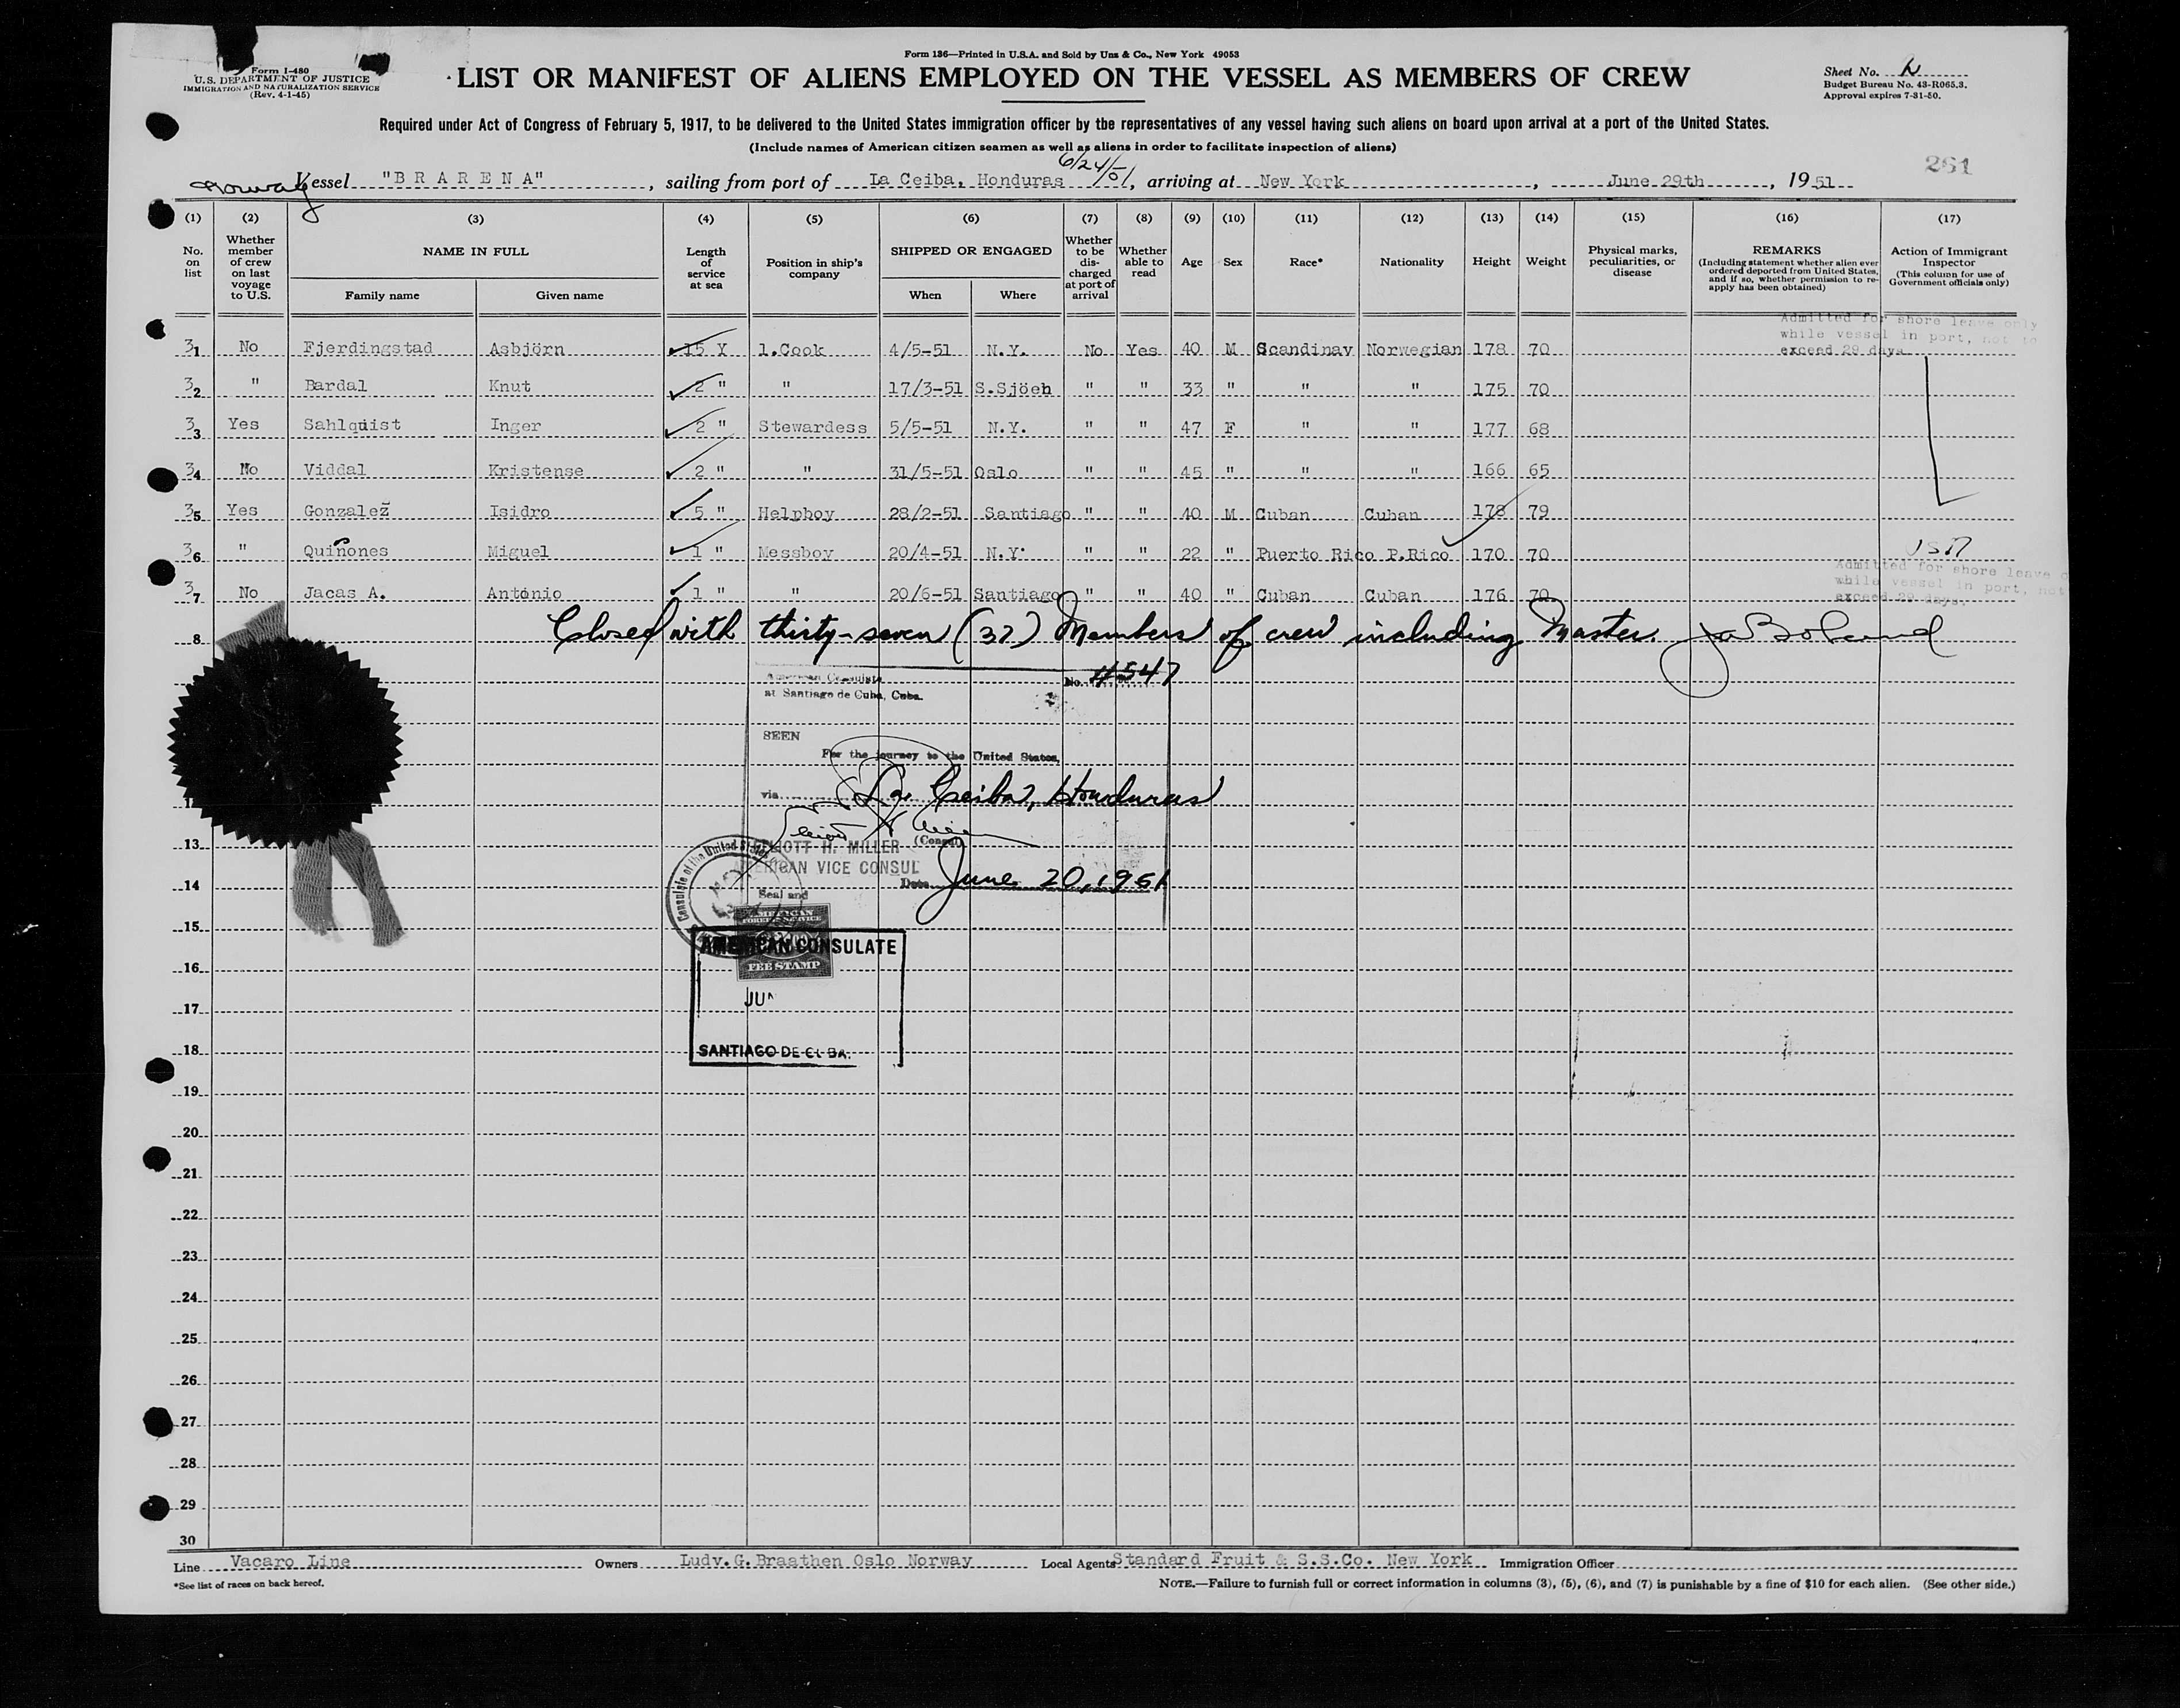 Form 136—Printed in U.S.A. and Sold by Unz & Co., New York 49053
Form I-480
U.S. DEPARTMENT OF JUSTICE
IMMIGRATION AND NATURALIZATION SERVICE
(Rev. 4-1-45)
LIST OR MANIFEST OF ALIENS EMPLOYED ON THE VESSEL AS MEMBERS OF CREW
Sheet No.
Budget Bureau No. 43-R065.3.
Approval expires 7-31-50.
Required under Act of Congress of February 5, 1917, to be delivered to the United States immigration officer by the representatives of any vessel having such aliens on board upon arrival at a port of the United States.
(Include names of American citizen seamen as well as aliens in order to facilitate inspection of aliens)
6/24/51
261
Norway Vessel "B R A R E N A", sailing from port of La Ceiba, Honduras, arriving at New York, June 29th, 1951
(1) (2) (3) (4) (5) (6) (7) (8) (9) (10) (11) (12) (13) (14) (15) (16) (17)
No. on list
Whether member of crew on last voyage to U.S.
NAME IN FULL
Family name Given name
Length of service at sea
Position in ship's company
SHIPPED OR ENGAGED
When Where
Whether to be discharged at port of arrival
Whether able to read
Age Sex Race* Nationality Height Weight
Physical marks, peculiarities, or disease
REMARKS
(Including statement whether alien ever ordered deported from United States, and if so, whether permission to reapply has been obtained)
Action of Immigrant Inspector
(This column for use of Government officials only)
Admitted for shore leave only
while vessel in port, not to
exceed 29 days.
31 No Fjerdingstad Asbjörn 15 Y 1.Cook 4/5-51 N.Y. No Yes 40 M Scandinav Norwegian 178 70
32 " Bardal Knut 2 " " 17/3-51 S.Sjöen " " 33 " " " 175 70
33 Yes Sahlquist Inger 2 " Stewardess 5/5-51 N.Y. " " 47 F " " 177 68
34 No Viddal Kristense 2 " " 31/5-51 Oslo " " 45 " " " 166 65
35 Yes Gonzalez Isidro 5 " Helpboy 28/2-51 Santiago " " 40 M Cuban Cuban 178 79
36 " Quiñones Miguel 1 " Messboy 20/4-51 N.Y. " " 22 " Puerto Rico P.Rico 170 70
37 No Jacas A. Antonio 1 " " 20/6-51 Santiago " " 40 " Cuban Cuban 176 70
Admitted for shore leave
while vessel in port, not
exceed 29 days.
8 Closed with thirty-seven (37) Members of crew including Master.
American Consulate
at Santiago de Cuba, Cuba.
No. 4547
SEEN
For the journey to the United States,
via La Ceiba, Honduras
13
ELLIOTT H. MILLER (Consul)
AMERICAN VICE CONSUL
Consulate of the United States
14
Seal and
Date June 20, 1951
AMERICAN
FOREIGN SERVICE
FEE STAMP
15
AMERICAN CONSULATE
16
JUN
17
18
SANTIAGO DE CUBA.
19
20
21
22
23
24
25
26
27
28
29
30
Line Vacaro Line Owners Ludv. G. Braathen Oslo Norway Local Agents Standard Fruit & S.S.Co. New York Immigration Officer
*See list of races on back hereof.
NOTE.—Failure to furnish full or correct information in columns (3), (5), (6), and (7) is punishable by a fine of $10 for each alien. (See other side.)